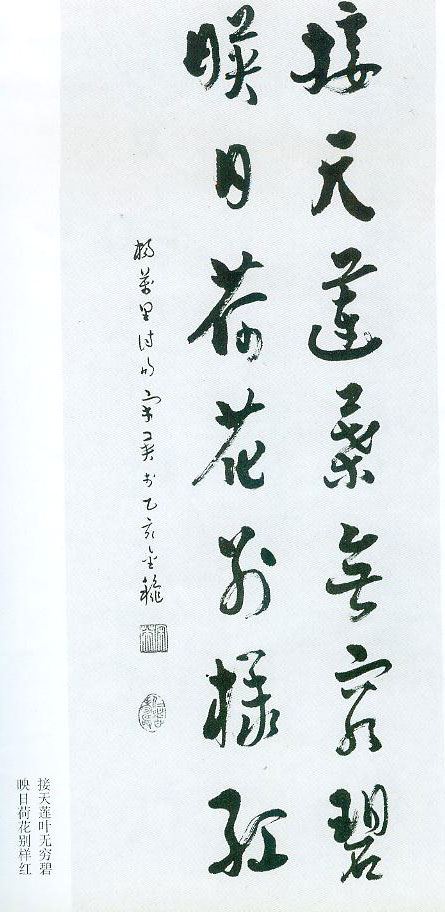 接天蓮葉無窮碧
暎日荷花別樣紅
楊萬里詩 乙亥金龝
接天莲叶无穷碧
映日荷花别样红